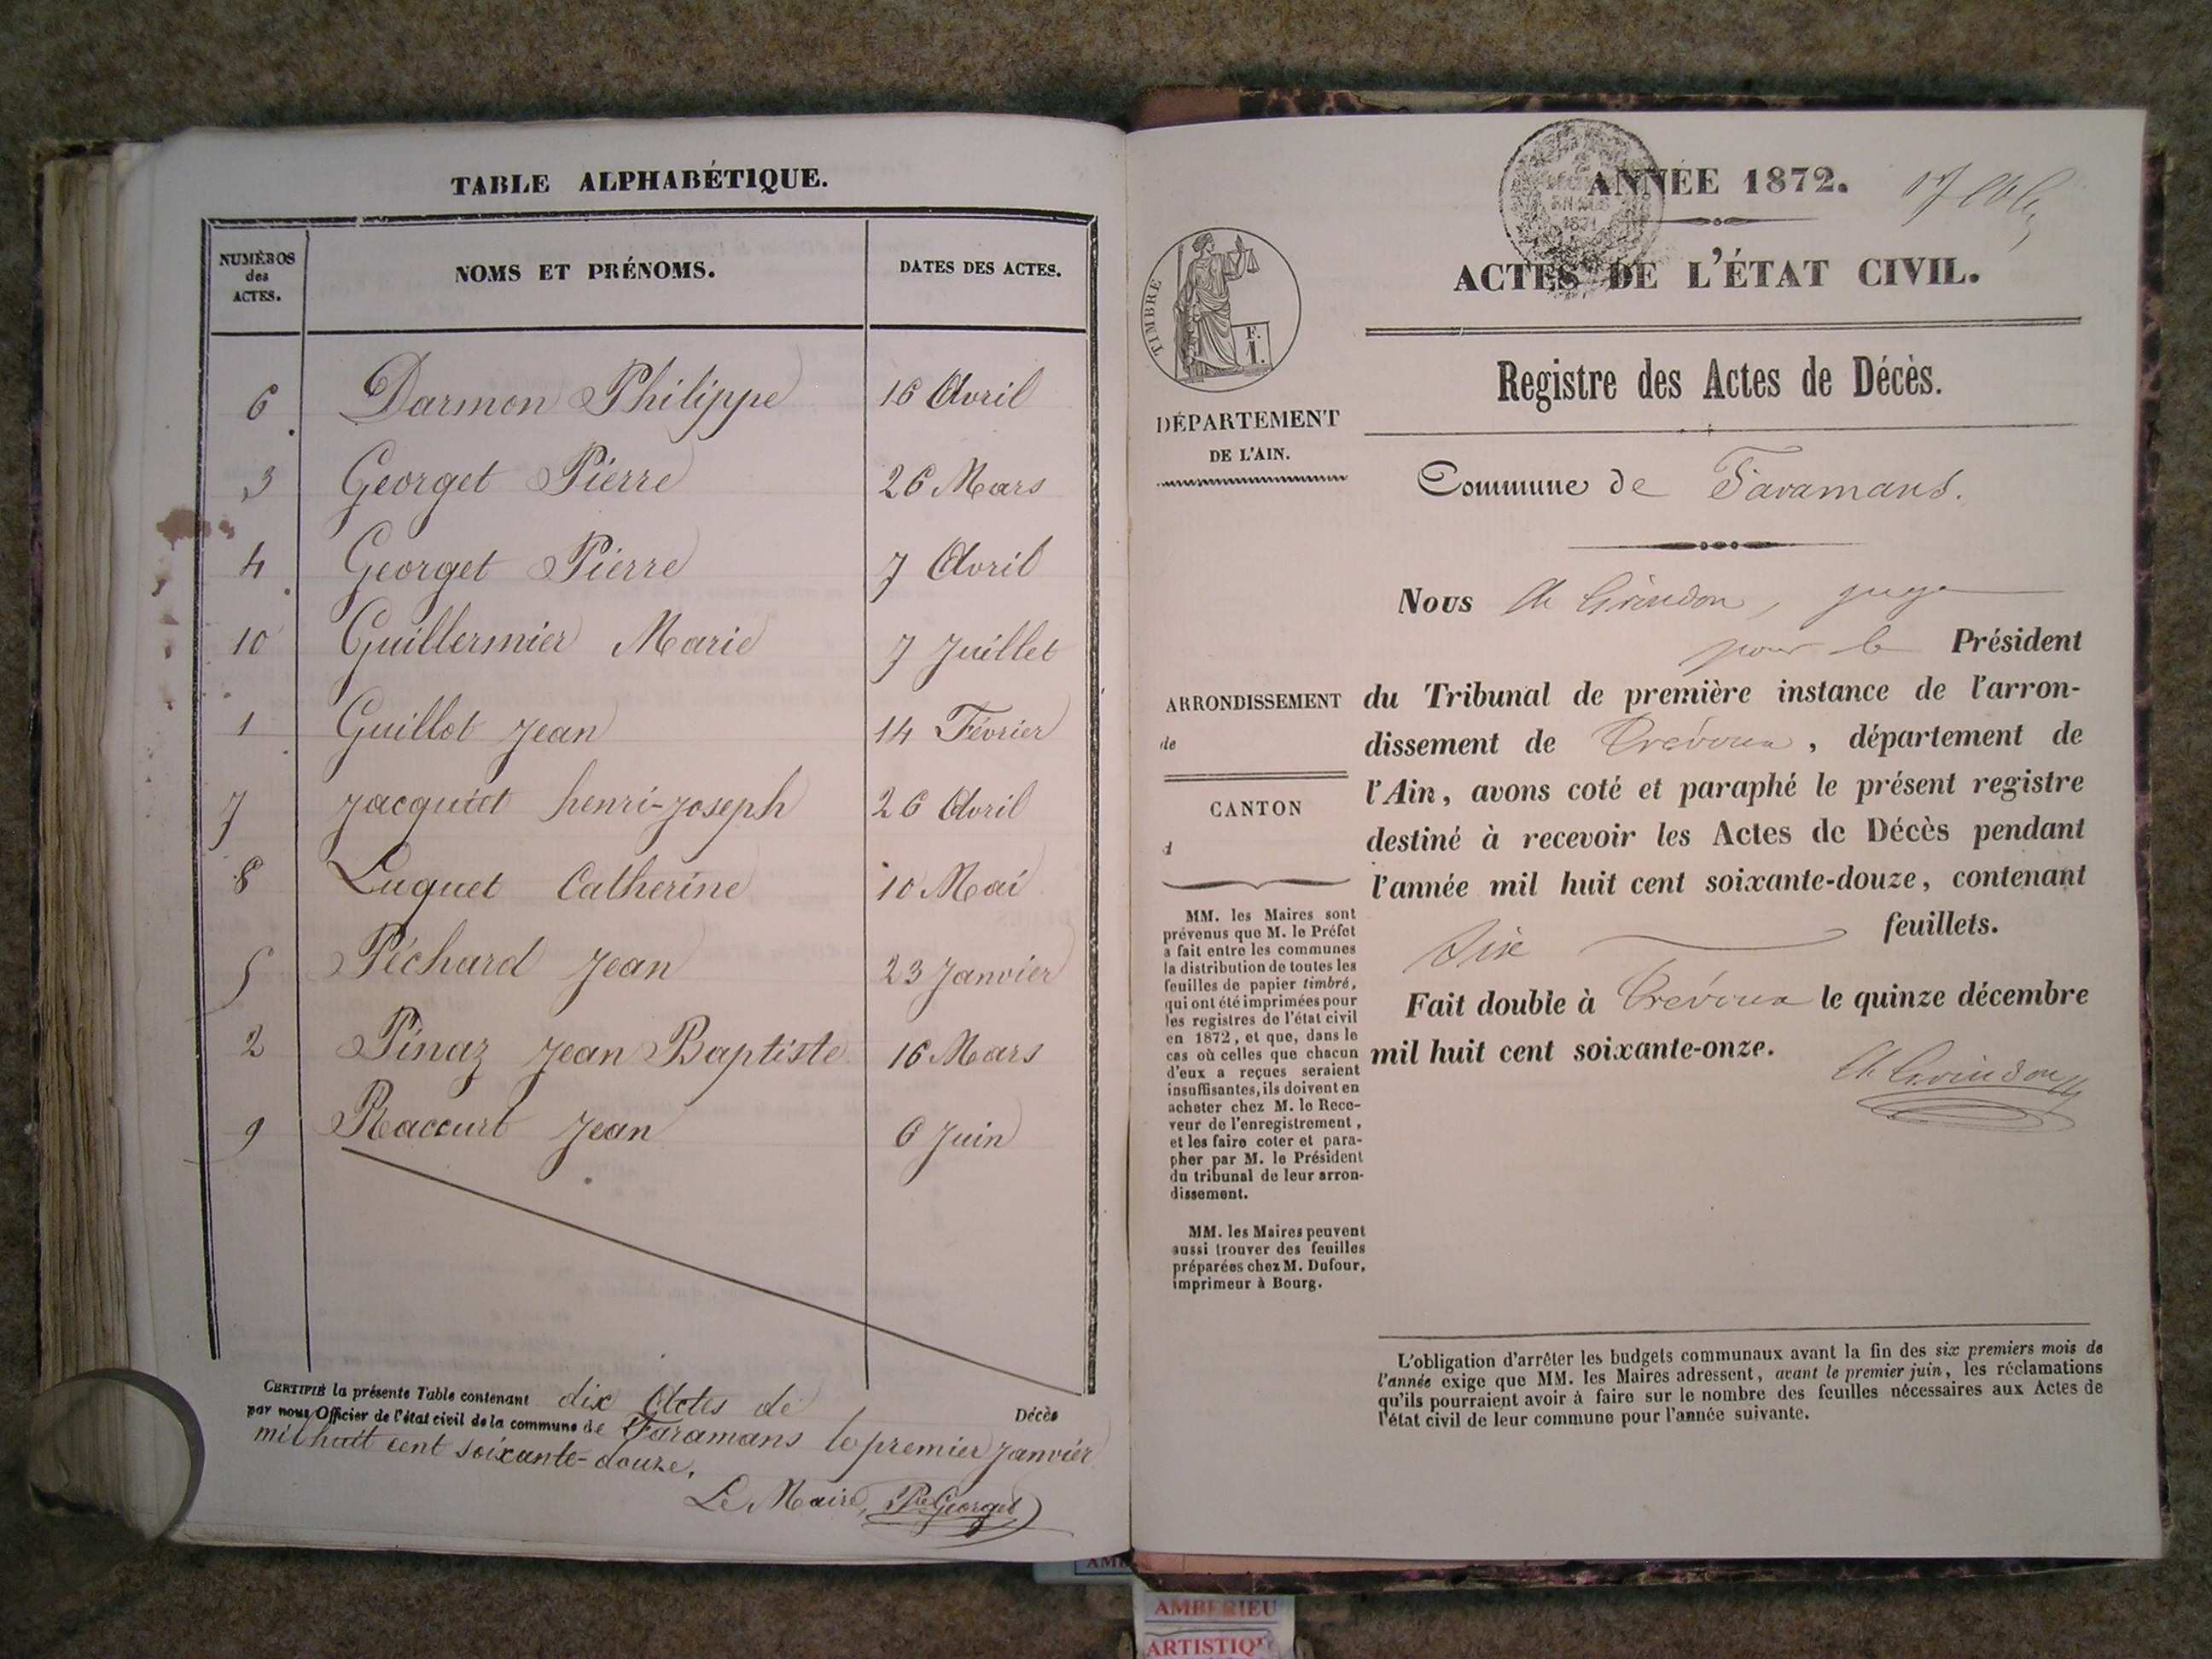 TABLE ALPHABÉTIQUE.
NUMÉROS des ACTES. NOMS ET PRÉNOMS. DATES DES ACTES.
6 Darmon Philippe 16 Avril
3 Georget Pierre 26 Mars
4 Georget Pierre 7 Avril
10 Guillermier Marie 7 Juillet
1 Guillot Jean 14 Février
7 Jacquiet henri-Joseph 26 Avril
8 Luquet Catherine 10 Mai
5 Péchard Jean 23 Janvier
2 Pinaz Jean Baptiste 16 Mars
9 Raccurt Jean 6 Juin
CERTIFIÉ la présente Table contenant dix Actes de Décès
par nous Officier de l'état civil de la commune de Faramans le premier Janvier
mil huit cent soixante-douze.
Le Maire, Pre Georget
ANNÉE 1872.
ACTES DE L'ÉTAT CIVIL.
TIMBRE
F.
1.
DÉPARTEMENT
DE L'AIN.
Registre des Actes de Décès.
Commune de Faramans.
Nous Ch Grindon, juge
pour le Président
ARRONDISSEMENT
de
CANTON
d
du Tribunal de première instance de l'arron-
dissement de Trévoux, département de
l'Ain, avons coté et paraphé le présent registre
destiné à recevoir les Actes de Décès pendant
l'année mil huit cent soixante-douze, contenant
dix feuillets.
Fait double à Trévoux le quinze décembre
mil huit cent soixante-onze.
Ch Grindon
MM. les Maires sont
prévenus que M. le Préfet
a fait entre les communes
la distribution de toutes les
feuilles de papier timbré,
qui ont été imprimées pour
les registres de l'état civil
en 1872, et que, dans le
cas où celles que chacun
d'eux a reçues seraient
insuffisantes, ils doivent en
acheter chez M. le Rece-
veur de l'enregistrement,
et les faire coter et para-
pher par M. le Président
du tribunal de leur arron-
dissement.
MM. les Maires peuvent
aussi trouver des feuilles
préparées chez M. Dufour,
imprimeur à Bourg.
L'obligation d'arrêter les budgets communaux avant la fin des six premiers mois de
l'année exige que MM. les Maires adressent, avant le premier juin, les réclamations
qu'ils pourraient avoir à faire sur le nombre des feuilles nécessaires aux Actes de
l'état civil de leur commune pour l'année suivante.
AMBERIEU
ARTISTIQU